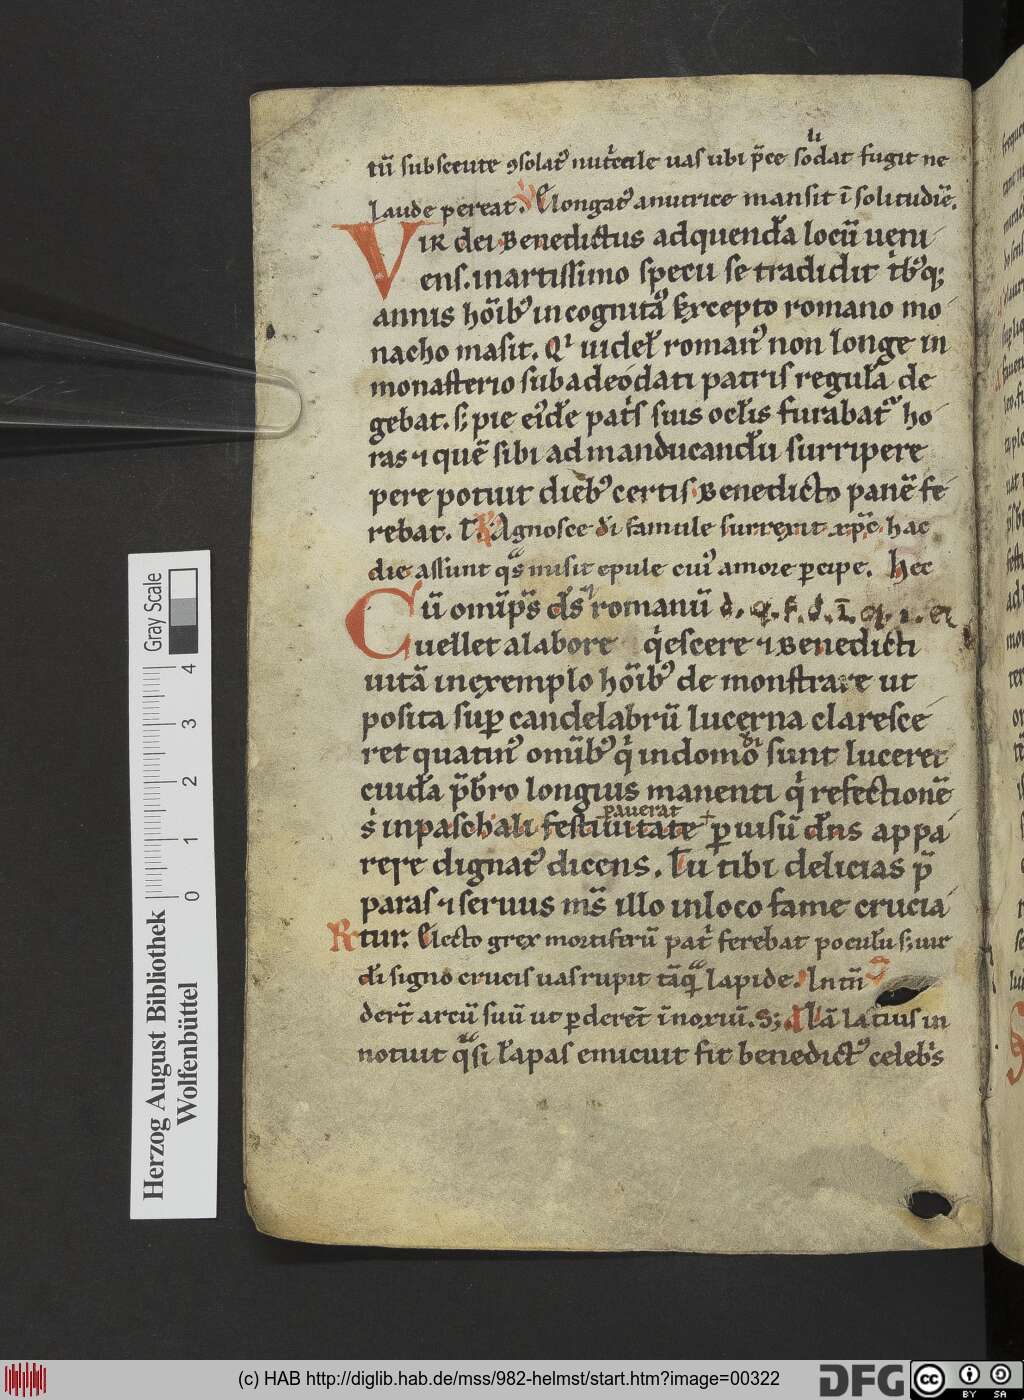 tū subsecute ꝯsolat᷒ nut͛cule uas ubi p̄ce sodat fugit ne
li
laude pereat. Elongat᷒ a nutrice mansit ī solitudiē.
VIR dei Benedictus ad quenđa locū ueni
ens. in artissimo specu se tradidit
annis hōib᷒ incognit᷒ Excepto romano mo
nacho masit. uideł roman᷒ non longe in
monasterio sub adeodati patris reguła de
gebat. s; pie ei᷒dē pat͛s suis ocłis furabat᷒ ho
ras ⁊ quē sibi ad manducandū surripere
pere potuit dieb᷒ certis Benedicto panē fe
rebat. T. R Agnosce di famule surrexit xp̄c hac
die assunt misit epule cui᷒ amore ꝑcipe. Hec
Cū omīps ds romanū d. q. f. d. i. q. i. er
uellet a labore qͥescere ⁊ Benedicti
uitā in exemplo hōib᷒ demonstrare ut
posita suꝑ candelabrū lucerna claresce
ret quatin᷒ omīb᷒ qͥ in domo sunt luceret
cuidā p̄bro longius manenti qͥ refectionē
sͥ in paschali festiuitate ꝑ uisū dn̄s appa
pauerat
rere dignat᷒ dicens. Tu tibi delicias p̄
paras ⁊ seruus ms̄ illo in loco fame crucia
R tur. Electo grex mortiferū pat͛ ferebat pocułu s; uir
di signo crucis uas rupit lapide. In tn̄
der̄t arcū suū ut ꝑderet īnoxiū. S; A lā latius in
notuit qͣsi łapas emicuit fit benedict᷒ celebͥs
Herzog August Bibliothek
Wolfenbüttel
Gray Scale
0 1 2 3 4
(c) HAB http://diglib.hab.de/mss/982-helmst/start.htm?image=00322
DFG
cc BY SA